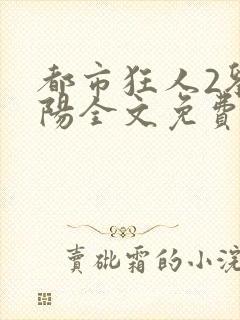 都市狂人2
陽全文免費
賣砒霜的小浣